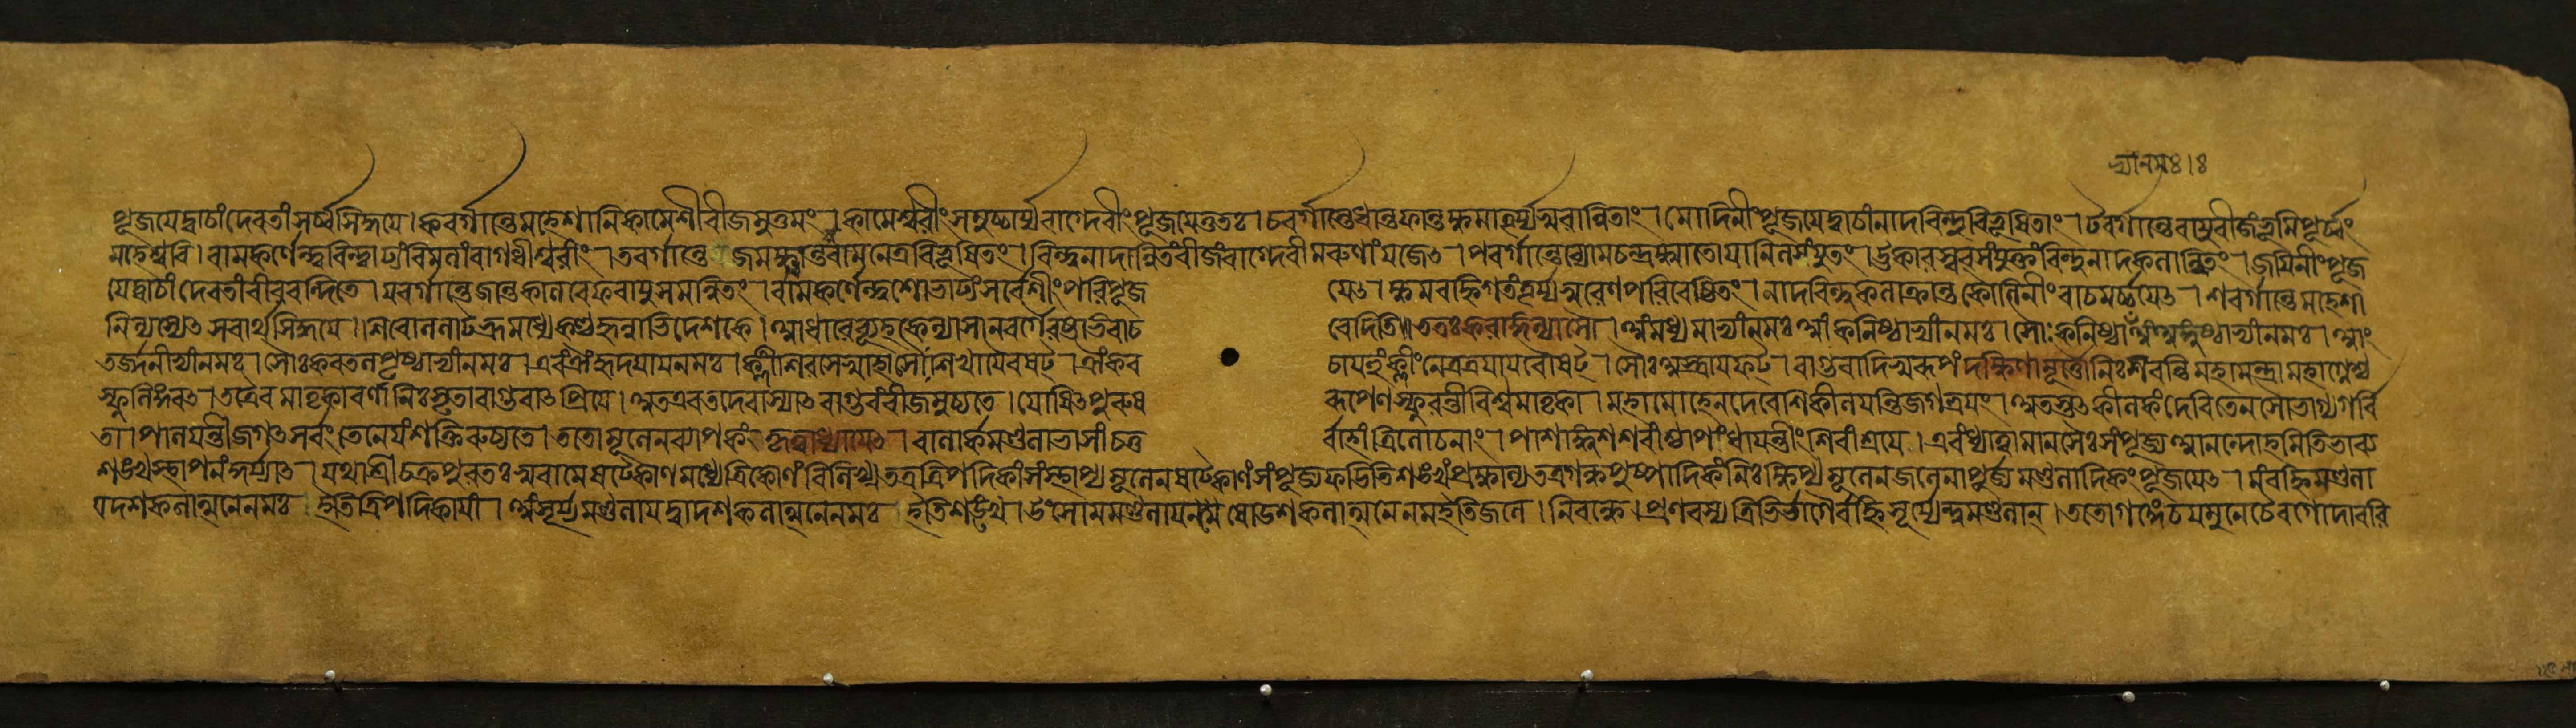 ভ্যাংনমঃ।ঃ
পূজয়েদ্বাচাংদেবতাংসর্ব্বসিদ্ধয়ে। কবর্গান্তেমহেশানিকামেশীবীজমুত্তমং। কামেশ্বরীংসমুচ্চার্য্যবাগ্দেবীংপূজয়েত্ততঃ। চবর্গান্তেধান্তফান্তক্ষমাতূর্য্যস্বরান্বিতাং। মোদিনীংপূজয়েদ্বাচাংনাদবিন্দুবিভূষিতাং। টবর্গান্তেবায়ুবীজংভূমিপূর্ব্বং
মহেশ্বরি। বামকর্ণেন্দুবিন্দ্বাঢ্যংবিমলাংবাগধীশ্বরীং। তবর্গান্তে জমক্ষ্মান্তবামনেত্রবিভূষিতং। বিন্দুনাদান্বিতংবীজংবাগ্দেবীমরুণাংযজেৎ। পবর্গান্তেব্যোমচন্দ্রক্ষ্মাতোয়ানিলসংযুতং। ঊকারস্বরসংযুক্তংবিন্দুনাদকলান্বিতং। জয়িনীংপূজ
য়েদ্বাচাংদেবতাংবীরবন্দিতে। যবর্গান্তেজান্তকালরেফবায়ুসমন্বিতং। বামকর্ণেন্দুশোভাঢ্যংসর্বেশীংপরিপূজ য়েৎ। ক্ষমবহ্নিগতংতূর্য্যস্বরেণপরিবেষ্টিতং। নাদবিন্দুকলাক্রান্তকৌলিনীংবাচমর্চ্চয়েৎ। শবর্গান্তেমহেশা
নিন্যস্যেৎসর্বার্থসিদ্ধয়ে। শিরোললাটভ্রূমধ্যকণ্ঠহৃন্নাভিদেশকে। আধারেব্যূহকেন্যাসানবর্গেরষ্টাভিরাচ রেদিতি॥ ততঃকরাঙ্গন্যাসৌ। অংমধ্যমাভ্যাংনমঃআংকনিষ্ঠাভ্যাংনমঃ। সৌঃকনিষ্ঠা অংঅঙ্গুষ্ঠাভ্যাংনমঃ। আং
তর্জ্জনীভ্যাংনমঃ। সৌঃকরতলপৃষ্ঠাভ্যাংনমঃ। এবংঐংহৃদয়ায়নমঃ। ক্লীংশিরসেস্বাহাসৌঃশিখায়ৈবষট্। ঐংকব চায়হুঁক্লীংনেত্রত্রয়ায়বৌষট্। সৌঃঅস্ত্রায়ফট্। বাগ্ভবাদিস্বরূপং দক্ষিণামূর্ত্তৌনিঃসরন্তিমহামন্ত্রামহাগ্নেশ্চ
স্ফুলিঙ্গবৎ। তত্রৈবমাতৃকাবর্ণানিঃসৃতাবাগ্ভবাৎপ্রিয়ে। অতএবতদেবাস্যাৎবাগ্ভবংবীজমুচ্যতে। যোষিৎপুরুষ রূপেণস্ফুরন্তীবিশ্বমাতৃকা। মহামোহেনদেবেশিকীলয়ন্তিজগত্রয়ং। অতস্তৎকীলকংদেবিতেনসৌভাগ্যগর্বি
তা। পালয়ন্তীজগৎসর্বংতেনেয়ংশক্তিরুচ্যতে। ততোমূলেনব্যাপকং কৃত্বাধ্যায়েৎ। বালার্কমণ্ডলাভাসাংচতু র্বাহাংত্রিলোচনাং। পাশাঙ্কুশশরাংশ্চাপংধারয়ন্তীংশিবাংশ্রয়ে। এবংধ্যাত্বামানসৈঃসংপূজ্যআনন্দোহমিতিভাব
শঙ্খস্থাপনংকুর্য্যাৎ। যথাশ্রীচক্রপুরতঃস্ববামেষট্‌কোণমধ্যেত্রিকোণংবিলিখ্যতত্রত্রিপদিকাংসংস্থাপ্যমূলেনষট্‌কোণংসংপূজ্যফডিতিশঙ্খংপ্রক্ষাল্যতত্রগন্ধপুষ্পাদিকংনিঃক্ষিপ্যমূলেনজলেনাপূর্জ্যমণ্ডলাদিকংপূজয়েৎ। মংবহ্নিমণ্ডলা
য়দশকলাত্মনেনমঃ ইতিত্রিপদিকায়াং। অংসূর্য্যমণ্ডলায়দ্বাদশকলাত্মনেনমঃ ইতিশঙ্খে। উংসোমমণ্ডলায় ষোডশকলাত্মনেনমইতিজলে। নিবন্ধে। প্রণবস্যত্রিভির্ভাগৈর্বহ্নিসূর্য্যেন্দুমণ্ডলান্। ততোগঙ্গেচযমুনেচৈবগোদাবরি